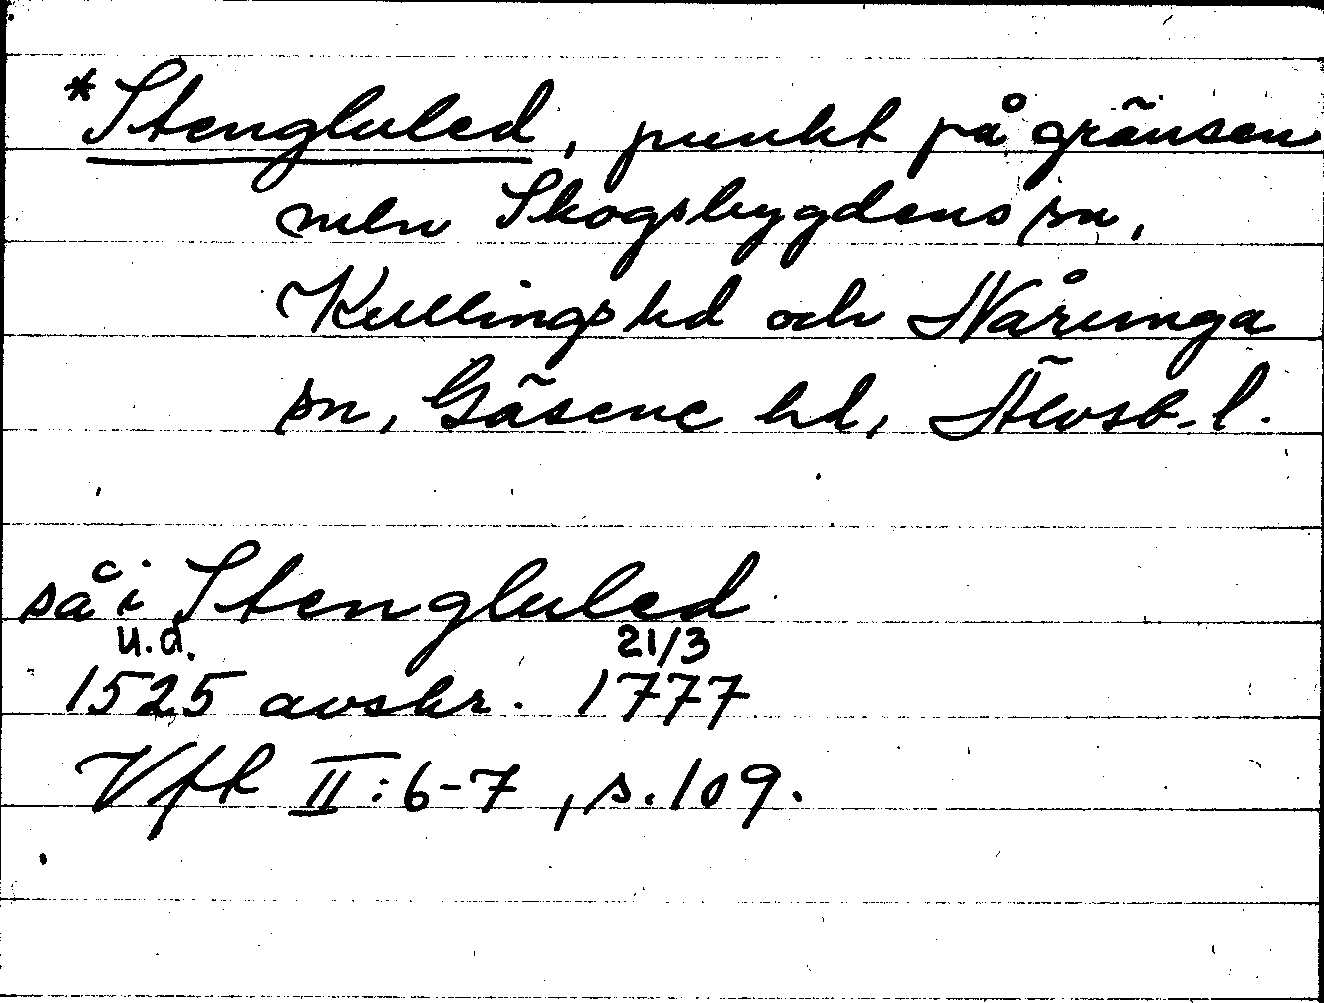 *Stengluled, punkt på gränsen
meln Skogsbygdens sn,
Kullings hd och Nårunga
sn, Gäsene hd, Älvsb. l.
så i Stengluled
u.d. 21/3
1525 avskr. 1777
Vfk II:6-7, s. 109.